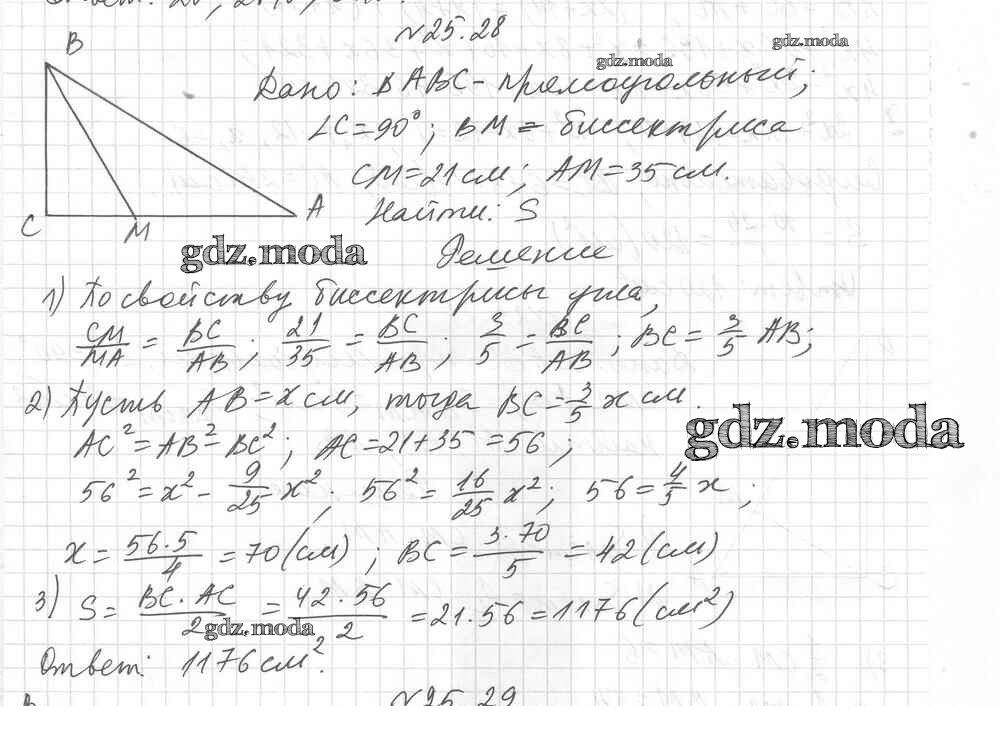 №25.28
gdz.moda
gdz.moda
B
Дано: △ABC - прямоугольный;
∠C=90°; BM - биссектриса
CM=21 см; AM=35 см.
Найти: S
C
M
A
gdz.moda
Решение
1) По свойству биссектрисы угла,
CM/MA = BC/AB; 21/35 = BC/AB; 3/5 = BC/AB; BC = 3/5 AB;
2) Пусть AB=x см, тогда BC=3/5 x см.
gdz.moda
AC²=AB²-BC²; AC=21+35=56;
56²=x²-9/25 x²; 56²=16/25 x²; 56=4/5 x;
x=56·5/4=70(см); BC=3·70/5=42(см)
3) S=BC·AC/2=42·56/2=21·56=1176(см²)
gdz.moda
Ответ: 1176 см².
№25.29